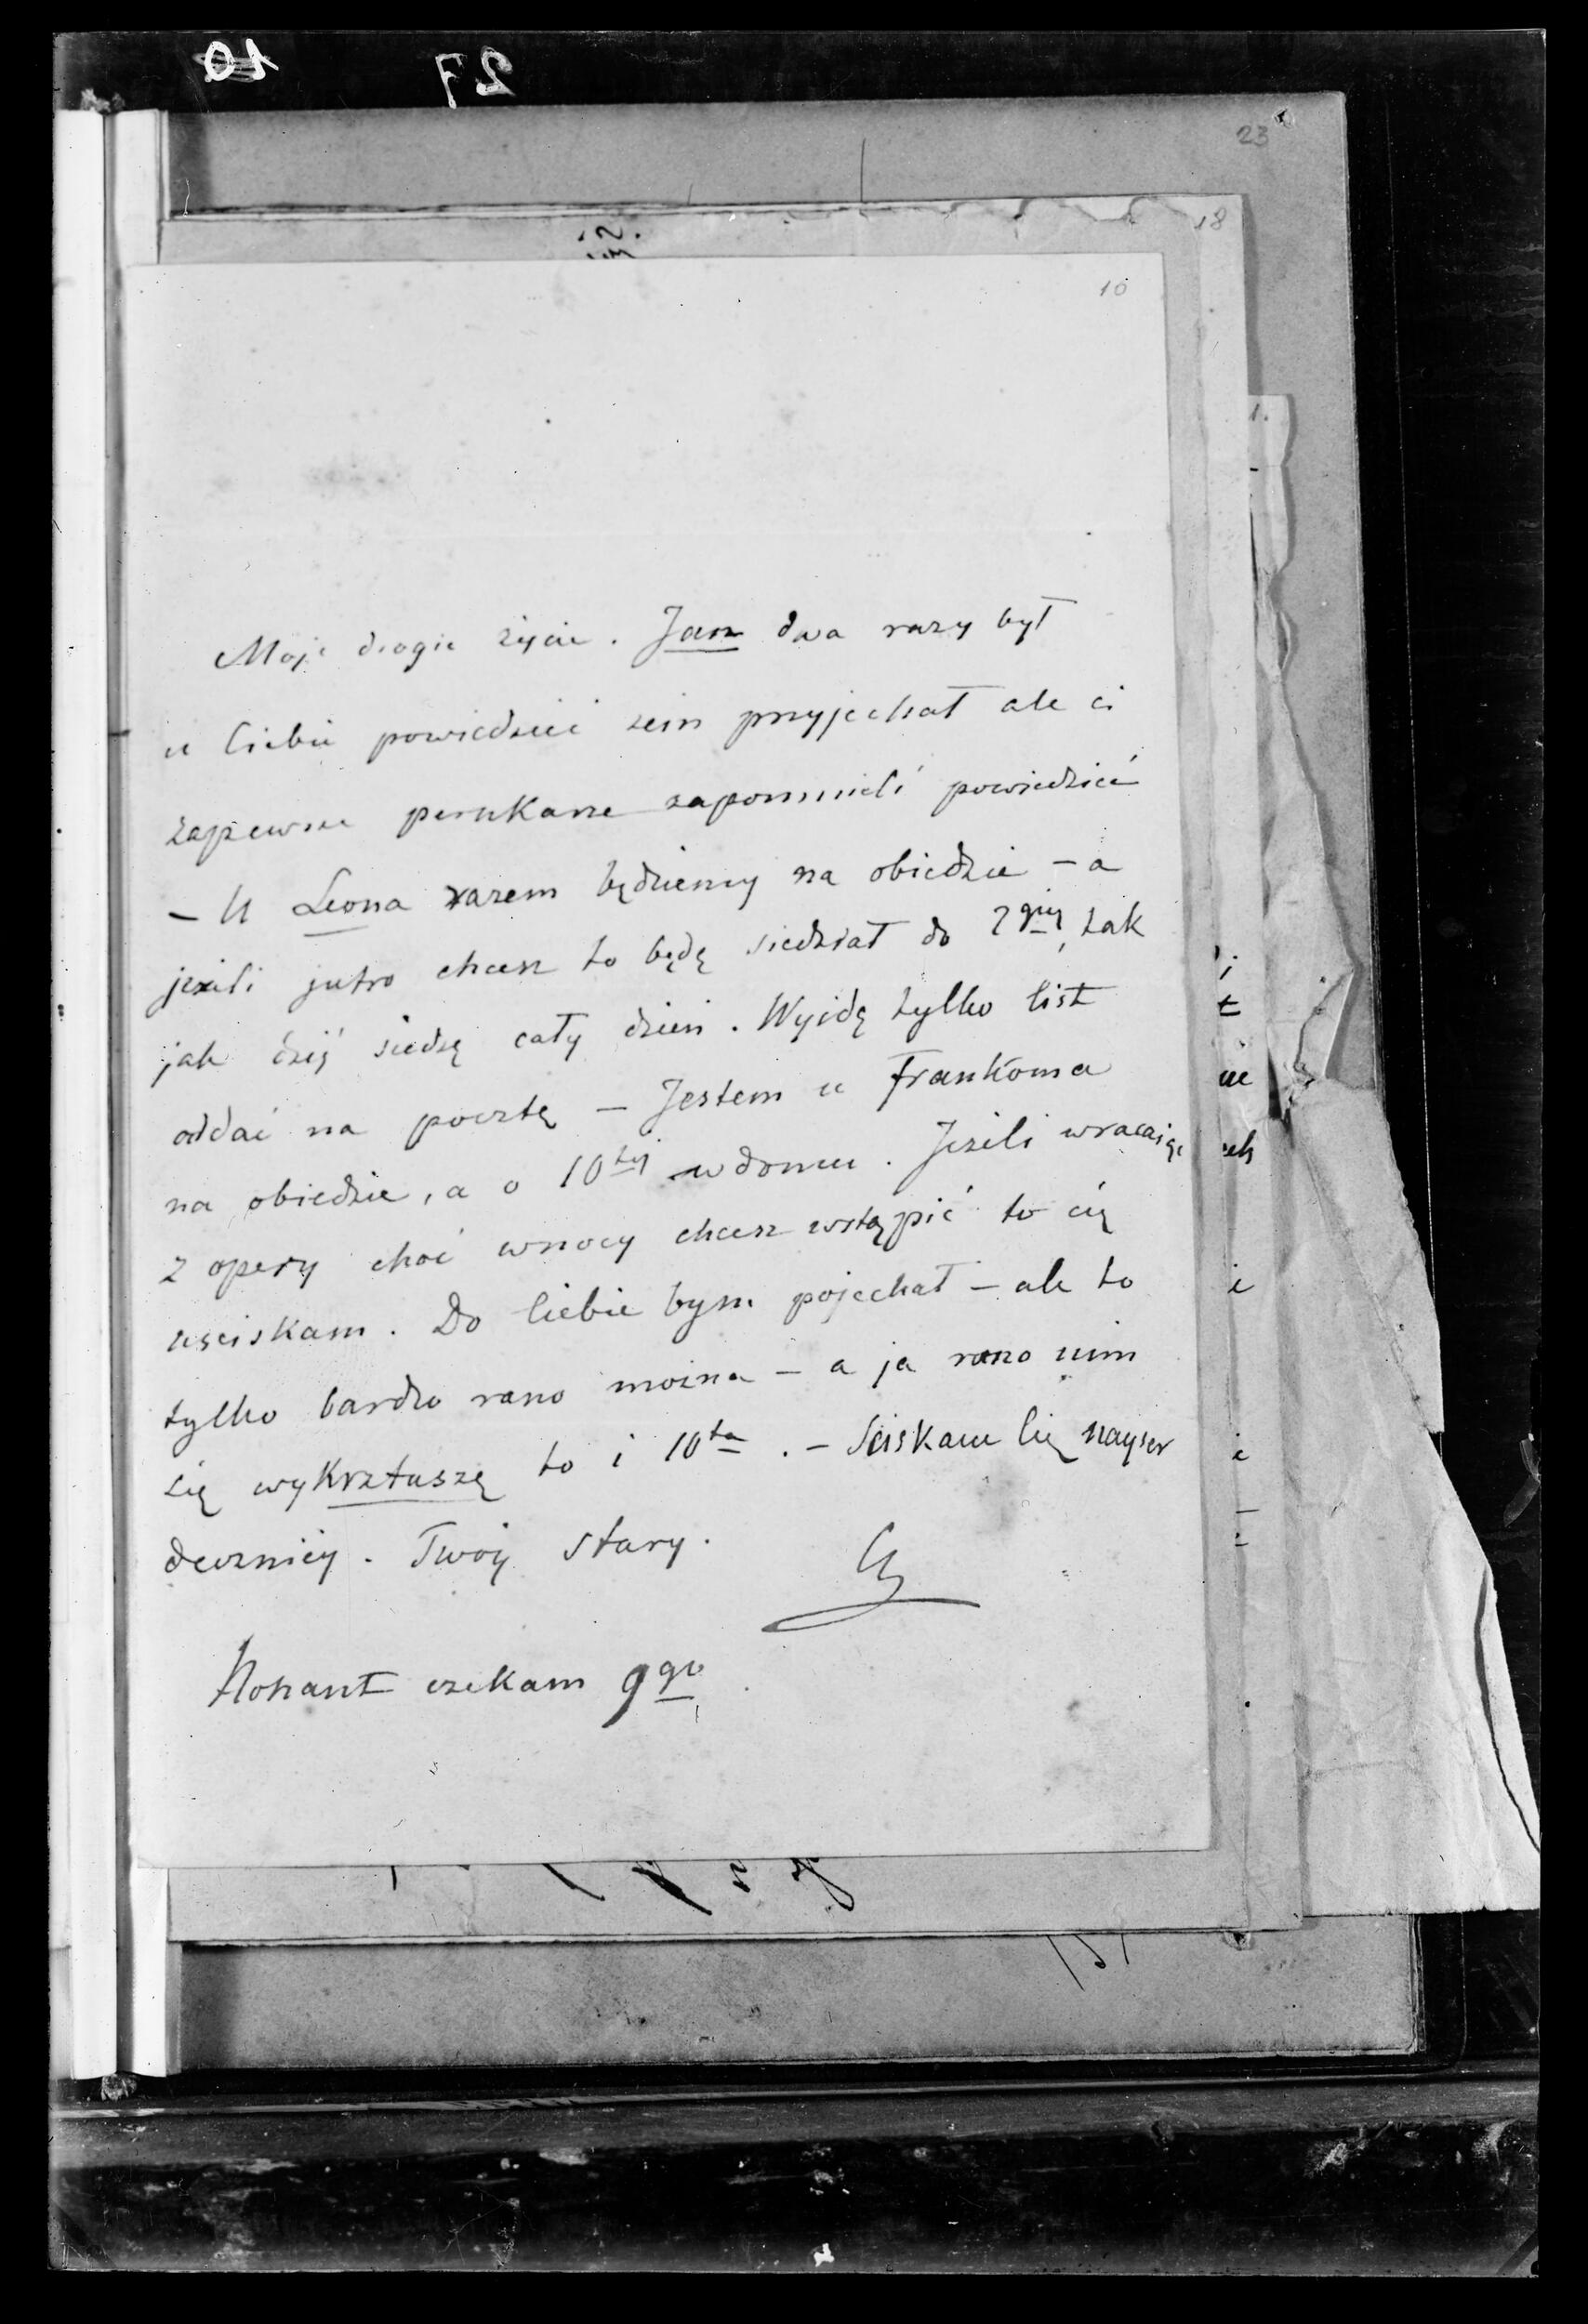 10
27
23
18
10
Moje drogie życie. Jan dwa razy był
u Ciebie powiedzieć żem przyjechał ale ci
zapewne perukarze zapomnieli powiedzieć
– U Leona razem będziemy na obiedzie – a
jeżeli jutro chcesz to będę siedział do 2giej, tak
jak dziś siedzę cały dzień. Wyjdę tylko list
oddać na pocztę – Jestem u Frankoma
na obiedzie, a o 10tej w domu. Jeżeli wracając
z opery choć wnocy chcesz wstąpić to cię
uściskam. Do Ciebie bym pojechał – ale to
tylko bardzo rano można – a ja rano nim
się wykrztuszę to i 10ta. – Ściskam Cię nayser
deczniey. Twój stary.
Ch
Nohant czekam 9go